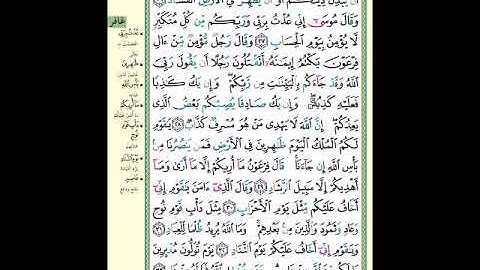 غافر
أَن يُبَدِّلَ دِينَكُمْ أَوْ أَن يُظْهِرَ فِى ٱلْأَرْضِ ٱلْفَسَادَ
وَقَالَ مُوسَىٰٓ إِنِّى عُذْتُ بِرَبِّى وَرَبِّكُم مِّن كُلِّ مُتَكَبِّرٍ
لَّا يُؤْمِنُ بِيَوْمِ ٱلْحِسَابِ ٢٧ وَقَالَ رَجُلٌ مُّؤْمِنٌ مِّنْ ءَالِ
فِرْعَوْنَ يَكْتُمُ إِيمَٰنَهُۥٓ أَتَقْتُلُونَ رَجُلًا أَن يَقُولَ رَبِّىَ
ٱللَّهُ وَقَدْ جَآءَكُم بِٱلْبَيِّنَٰتِ مِن رَّبِّكُمْ وَإِن يَكُ كَٰذِبًا
فَعَلَيْهِ كَذِبُهُۥ وَإِن يَكُ صَادِقًا يُصِبْكُم بَعْضُ ٱلَّذِى
يَعِدُكُمْ إِنَّ ٱللَّهَ لَا يَهْدِى مَنْ هُوَ مُسْرِفٌ كَذَّابٌ ٢٨ يَٰقَوْمِ
لَكُمُ ٱلْمُلْكُ ٱلْيَوْمَ ظَٰهِرِينَ فِى ٱلْأَرْضِ فَمَن يَنصُرُنَا مِنۢ
بَأْسِ ٱللَّهِ إِن جَآءَنَا قَالَ فِرْعَوْنُ مَآ أُرِيكُمْ إِلَّا مَآ أَرَىٰ وَمَآ
أَهْدِيكُمْ إِلَّا سَبِيلَ ٱلرَّشَادِ ٢٩ وَقَالَ ٱلَّذِىٓ ءَامَنَ يَٰقَوْمِ إِنِّىٓ
أَخَافُ عَلَيْكُم مِّثْلَ يَوْمِ ٱلْأَحْزَابِ ٣٠ مِثْلَ دَأْبِ قَوْمِ نُوحٍ
وَعَادٍ وَثَمُودَ وَٱلَّذِينَ مِنۢ بَعْدِهِمْ وَمَا ٱللَّهُ يُرِيدُ ظُلْمًا لِّلْعِبَادِ ٣١
وَيَٰقَوْمِ إِنِّىٓ أَخَافُ عَلَيْكُمْ يَوْمَ ٱلتَّنَادِ ٣٢ يَوْمَ تُوَلُّونَ مُدْبِرِينَ